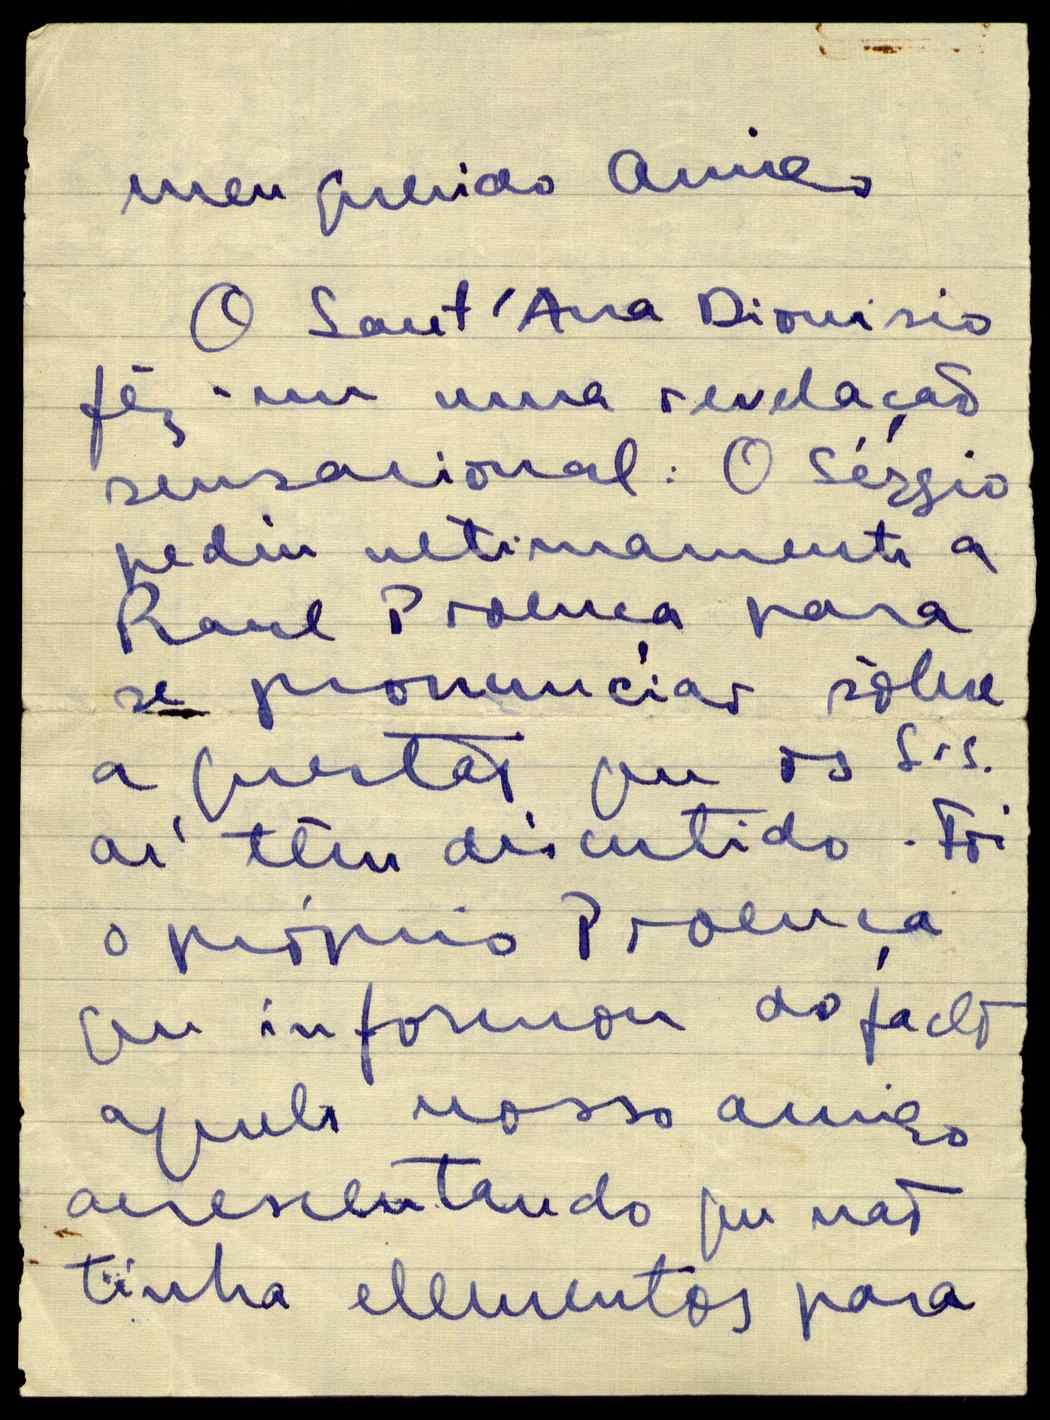 Meu querido Amigo
O Sant'Ana Dionisio
fêz-me uma revelação
sensacional: O Sérgio
pediu ultimamente a
Raul Proença para
se pronunciar sôbre
a questão que os Srs.
aí têm discutido. Foi
o próprio Proença
que informou do facto
aquele nosso amigo
acrescentando que não
tinha elementos para